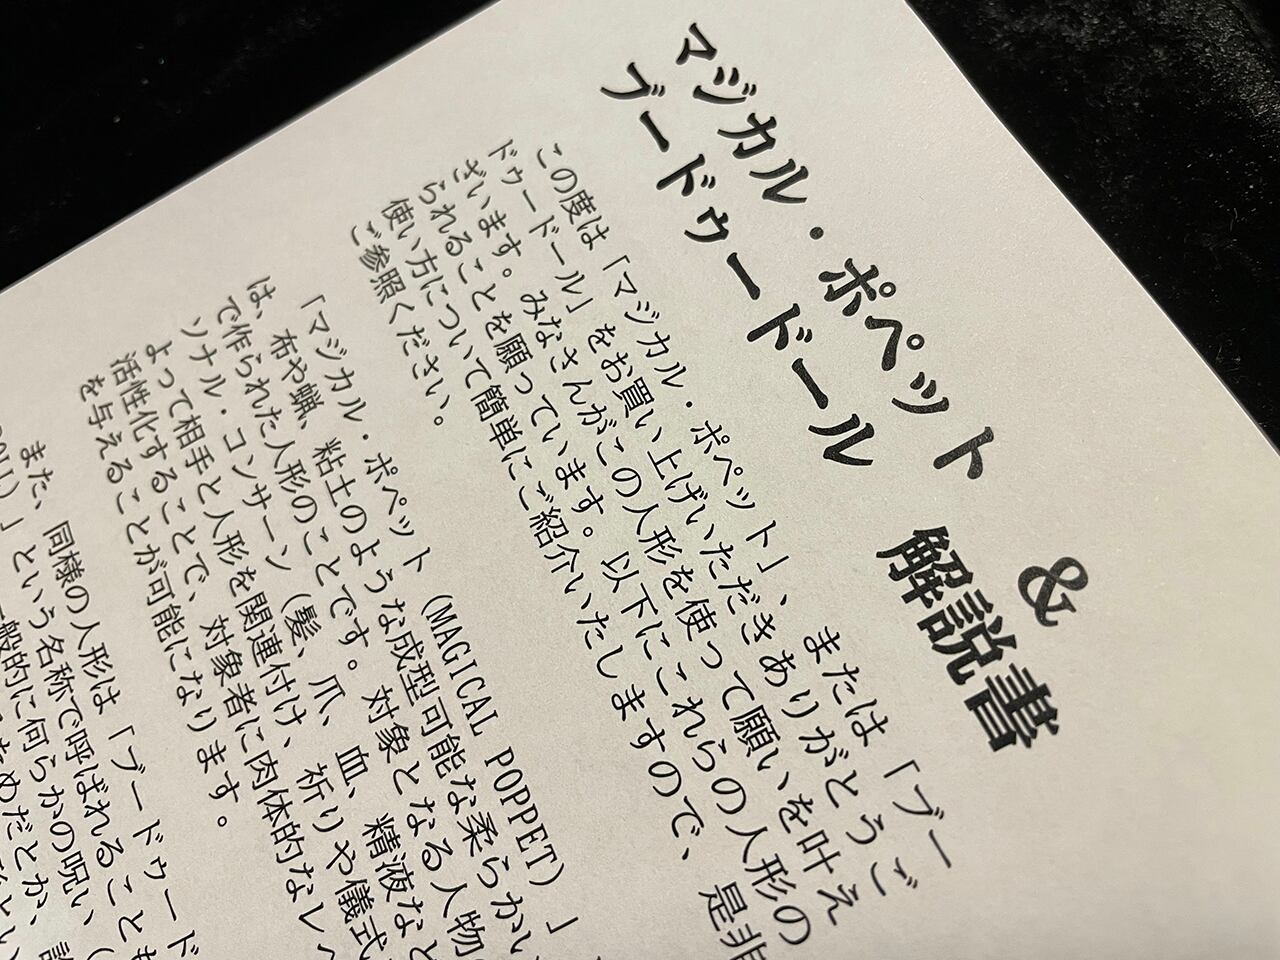 マジカル・ポペット &
ブードゥードール 解説書
この度は「マジカル・ポペット」、または「ブー
ドゥードール」をお買い上げいただきありがとうご
ざいます。みなさんがこの人形を使って願いを叶え
られることを願っています。以下にこれらの人形の
使い方について簡単にご紹介いたしますので、是非
ご参照ください。
「マジカル・ポペット (MAGICAL POPPET) 」
は、布や蝋、粘土のような成型可能な柔らかい
で作られた人形のことです。対象となる人物
ソナル・コンサーン (髪、爪、血、精液など
よって相手と人形を関連付け、祈りや儀式
活性化することで、対象者に肉体的なレ
を与えることが可能になります。
また、同様の人形は「ブードゥード
」という名称で呼ばれることも
般的に何らかの呪い (
ためだとか、